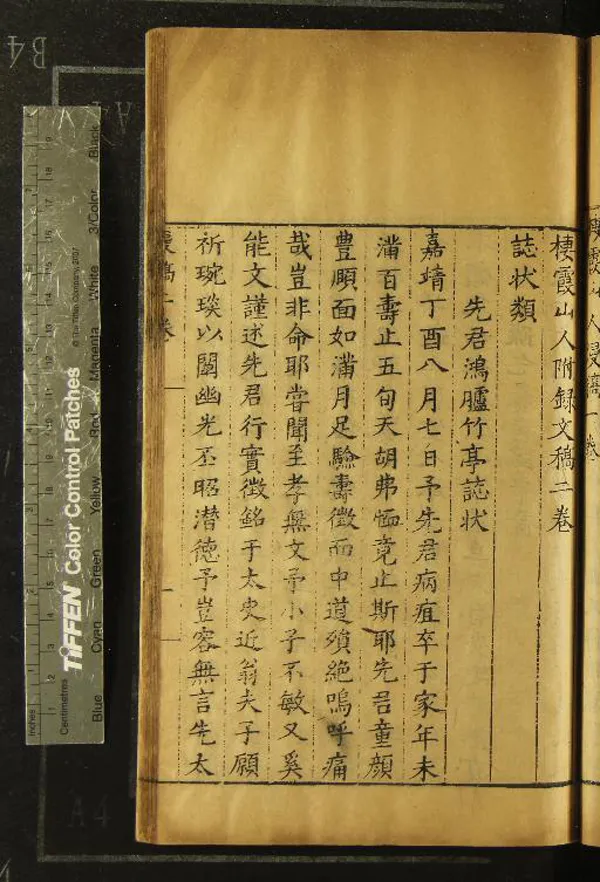 棲霞山人附録文稿二卷
誌状類
先君鴻臚竹亭誌状
嘉靖丁酉八月七日予先君病疽卒于家年未
滿百壽止五旬天胡弗恤竟止斯耶先君童顔
豊頥面如滿月足驗壽徵而中道殞絶嗚呼痛
哉豈非命耶嘗聞至孝無文予小子不敏又奚
能文謹述先君行實徵銘于太史近翁夫子願
祈琬琰以闡幽光丕昭潜德予豈容無言先太
稿二卷
B4
A4
Inches
Centimetres
TIFFEN Color Control Patches
© The Tiffen Company, 2007
Blue Cyan Green Yellow Red Magenta White 3/Color Black